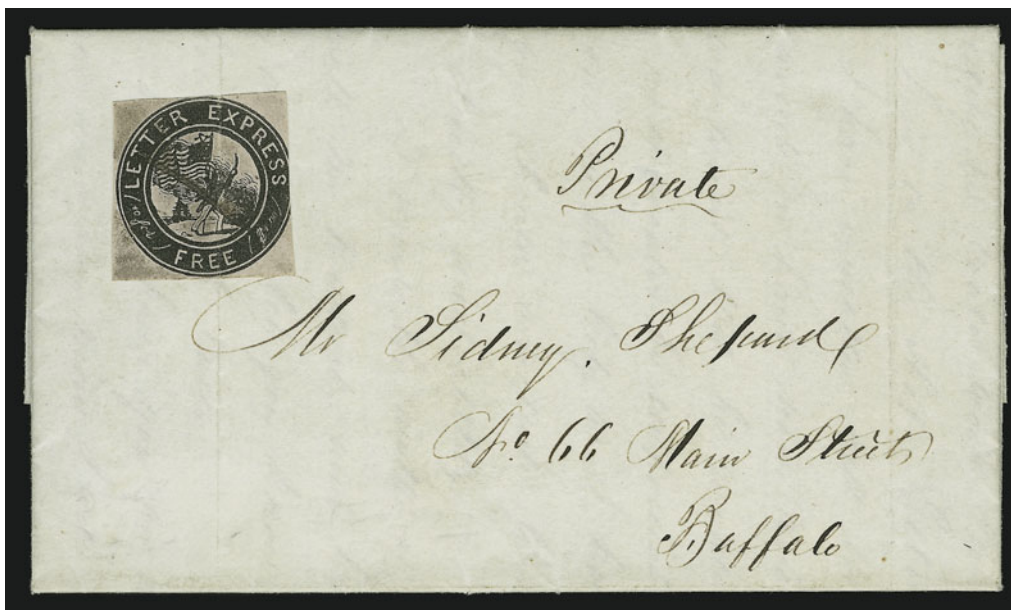 LETTER EXPRESS
FREE
Private
Mr Sidney. Shepard
No. 66 Main Street
Buffalo